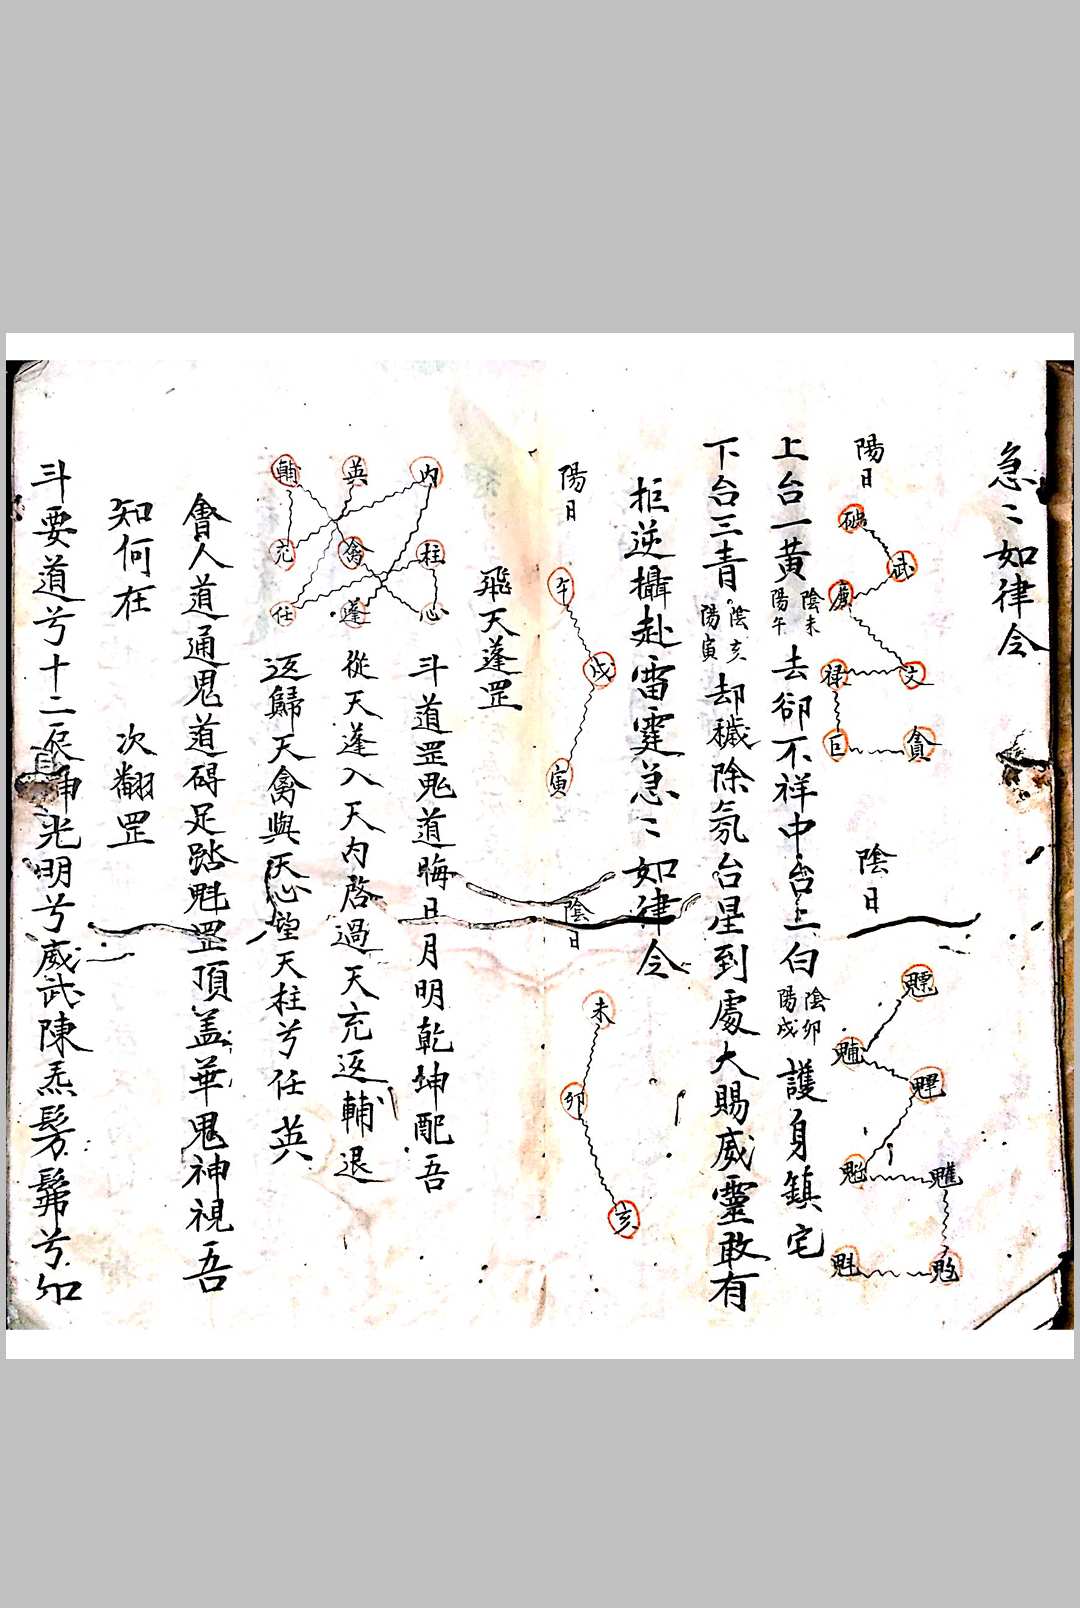 急〻如律令
陽日
破
武
廉
文
祿
巨
貪
陰日
魒
魓
䰢
魁
上台一黃陰未陽午去卻不祥中台上白陰卯陽戌護身鎮宅
下台三青陰亥陽寅却穢除氛台星到處大賜威靈敢有
拒逆攝赴雷霆急〻如律令
陽日
午
戌
寅
陰日
未
卯
亥
飛天蓬罡
內
柱
心
英
禽
蓬
輔
充
任
斗道罡鬼道晦日月明乾坤配吾
從天蓬入天內啓過天充返輔退
返歸天禽與天心望天柱兮任英
會人道通鬼道碍足踏魁罡頂盖華鬼神視吾
知何在
次翻罡
斗要道兮十二辰神光明兮威武陳炁髣髴兮